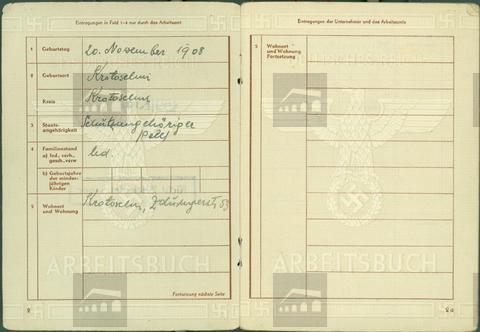 Eintragungen in Feld 1–4 nur durch das Arbeitsamt
1 Geburtstag 20. November 1908
2 Geburtsort Krotoschin
Kreis Krotoschin
3 Staats-
angehörigkeit Schutzangehöriger
(Pole)
4 Familienstand
a) led., verh.,
gesch., verw. led.
b) Geburtsjahre
der minder-
jährigen
Kinder
5 Wohnort
und Wohnung Krotoschin,
Fortsetzung nächste Seite
ARBEITSBUCH
2
Eintragungen der Unternehmer und des Arbeitsamts
5 Wohnort
und Wohnung
Fortsetzung
ARBEITSBUCH
2a